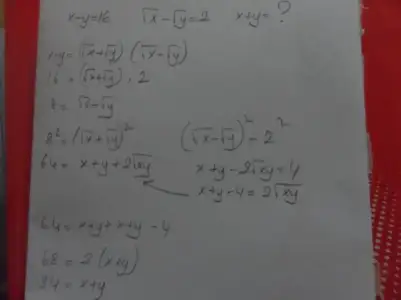 x-y=16 √x-√y=2 x+y=?
x-y=(√x+√y)(√x-√y)
16=(√x+√y).2
8=√x-√y
8²=(√x+√y)² (√x-√y)²-2²
64=x+y+2√xy x+y-2√xy=4
x+y-4=2√xy
64=x+y+x+y-4
68=2(x+y)
34=x+y